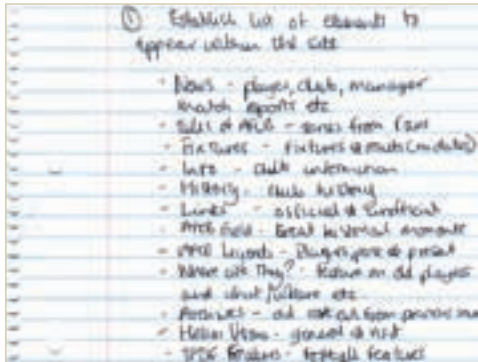 ① Establish list of elements to
appear within the site
- News - player, club, manager
match reports etc
- Tales of AFCB - stories from fans
- Fixtures - fixtures & results (no dates)
- Info - club information
- History - club history
- Links - official & unofficial
- AFCB - Great historical moments
- AFCB Legends - Players past & present
- Where are They? - Feature on old players
and what etc
- Archives - old from previous
- - general
- Features - football features